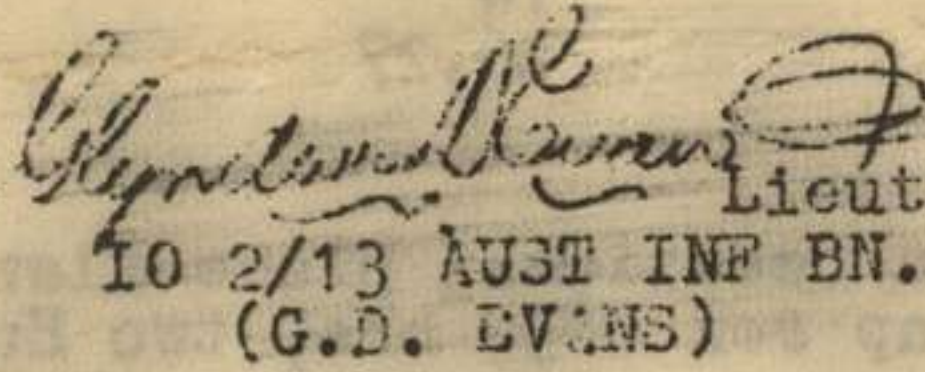 Lieut
IO 2/13 AUST INF BN.
(G.D. EVANS)